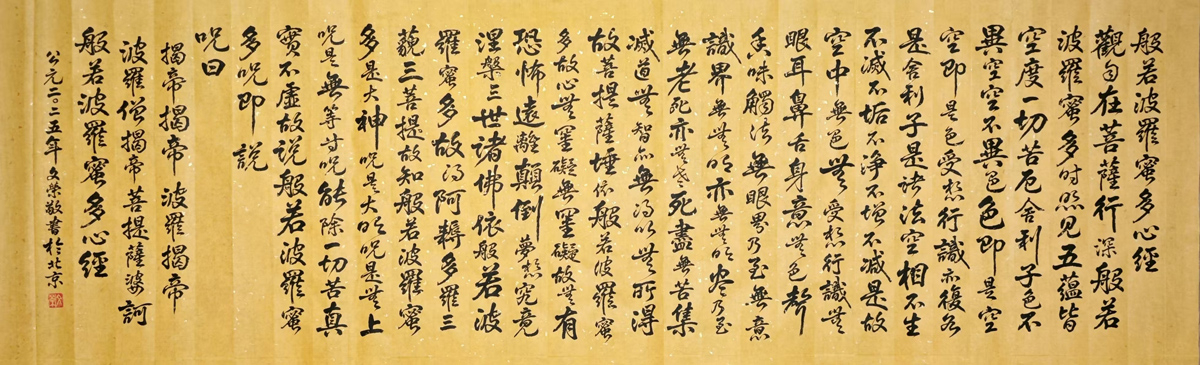 般若波羅蜜多心經
觀自在菩薩行深般若
波羅蜜多時照見五蘊皆
空度一切苦厄舍利子色不
異空空不異色色即是空
空即是色受想行識亦復如
是舍利子是諸法空相不生
不滅不垢不淨不增不減是故
空中無色無受想行識無
眼耳鼻舌身意無色聲
香味觸法無眼界乃至無意
識界無無明亦無無明盡乃至
無老死亦無老死盡無苦集
滅道無智亦無得以無所得
故菩提薩埵依般若波羅蜜
多故心無罣礙無罣礙故無有
恐怖遠離顛倒夢想究竟
涅槃三世諸佛依般若波
羅蜜多故得阿耨多羅三
藐三菩提故知般若波羅蜜
多是大神呪是大明呪是無上
呪是無等等呪能除一切苦真
實不虛故說般若波羅蜜
多呪即說
呪曰
揭帝揭帝波羅揭帝
波羅僧揭帝菩提薩婆訶
般若波羅蜜多心經
公元二〇二五年文榮敬書於北京